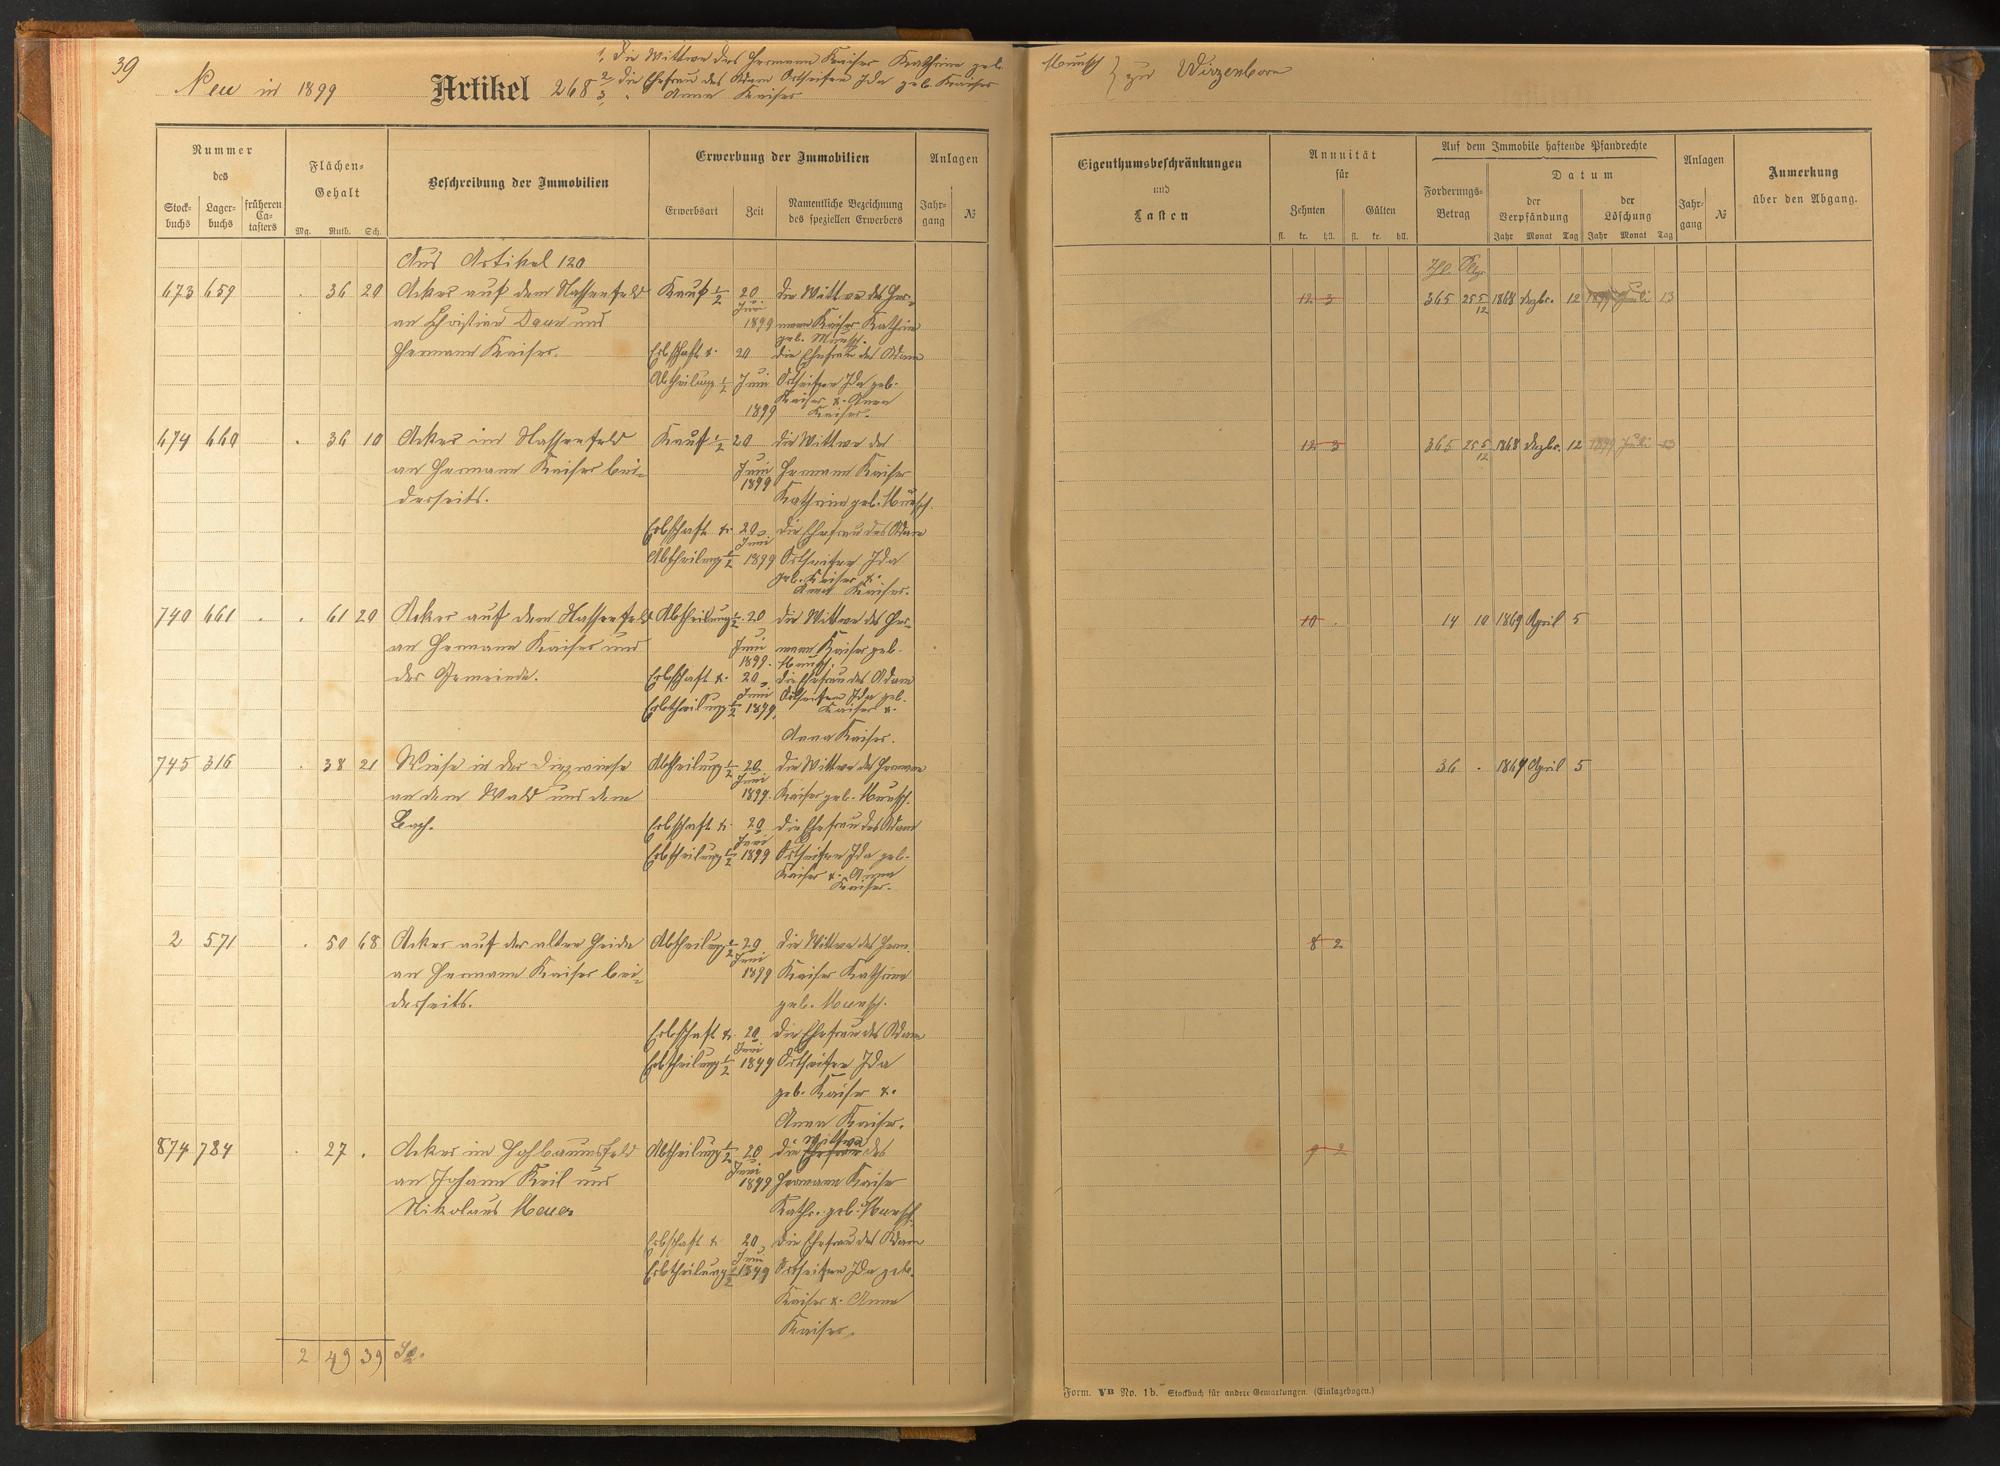 39
Neu in 1899
Artikel 268
1, die Wittwe des Hermann Kaiser Kathrina geb. Münsch
2, die Ehefrau des Adam Ortseifen Ida geb. Kaiser
3, " Anna Kaiser
} zu Wirzenborn
Nummer des
Stock-buchs
Lager-buchs
früheren Ca-tasters
Flächen-Gehalt
Mg. Ruth. Sch.
Beschreibung der Immobilien
Erwerbung der Immobilien
Erwerbsart
Zeit
Namentliche Bezeichnung des speziellen Erwerbers
Anlagen
Jahr-gang
№
Eigenthumsbeschränkungen
und
Lasten
Annuität
für
Zehnten
Gülten
fl. kr. hll. fl. kr. hll.
Auf dem Immobile haftende Pfandrechte
Forderungs-Betrag
Datum
der Verpfändung
der Löschung
Jahr Monat Tag Jahr Monat Tag
Anlagen
Jahr-gang
№
Anmerkung
über den Abgang.
Aus Artikel 120
673 659 . 36 20 Acker auf dem Nassenfeld Kauf 1/2 20 die Wittwe des Her-
Juni
an Christian Daun und 1899 mann Kaiser Kathrin
geb. Münsch.
Hermann Kaiser. Erbschaft & 20 die Ehefrau des Adam
Abtheilung 1/2 Juni Ortseifen Ida geb.
Kaiser & Anna
1899 Kaiser.
12 3 365 25 5/12 1868 Dezbr. 12 1899 Juli 13
674 660 . 36 10 Acker im Nassenfeld Kauf 1/2 20 die Wittwe des
an Hermann Kaiser bei- Juni Hermann Kaiser
1899
derseits. Kathrin geb. Münsch.
Erbschaft & 20 die Ehefrau des Adam
Juni
Abtheilung 1/2 1899 Ortseifen Ida
geb. Kaiser &
Anna Kaiser.
12 3 365 25 5/12 1868 Dezbr. 12 1899 Juli 13
740 661 . . 61 20 Acker auf dem Nassenfeld Abtheilung 1/2 20 die Wittwe des Her-
an Hermann Kaiser und Juni mann Kaiser geb.
1899. Münsch.
der Gemeinde. Erbschaft & 20 die Ehefrau des Adam
Juni Ortseifen Ida geb.
Erbtheilung 1/2 1899, Kaiser &
Anna Kaiser.
10 . 14 10 1869 April 5
745 316 . 38 21 Wiese in der Diezwiese Abtheilung 1/2 20 die Wittwe des Hermann
Juni
an dem Wald und dem 1899. Kaiser geb. Münsch.
Bach. Erbschaft & 20 die Ehefrau des Adam
Juni
Erbtheilung 1/2 1899 Ortseifen Ida geb.
Kaiser & Anna
Kaiser.
36 . 1869 April 5
2 571 . 50 68 Acker auf der alten Heide Abtheilung 1/2 20 die Wittwe des Herm.
Juni
an Hermann Kaiser bei- 1899 Kaiser Kathrina
derseits. geb. Münsch.
Erbschaft & 20 die Ehefrau des Adam
Juni
Erbtheilung 1/2 1899 Ortseifen Ida
geb. Kaiser &
Anna Kaiser.
8 2
874 784 . 27 . Acker im Hohbaumsfeld Abtheilung 1/2 20 die Ehefrau Wittwe des
Juni
an Johann Keil und 1899 Hermann Kaiser
Nikolaus Meuer Kathr. geb. Münsch.
Erbschaft & 20 die Ehefrau des Adam
Juni
Erbtheilung 1/2 1899 Ortseifen Ida geb.
Kaiser & Anna
Kaiser.
9 2
2 49 39 Sa.
Form. VB No. 1b. Stockbuch für andere Gemarkungen. (Einlagebogen.)